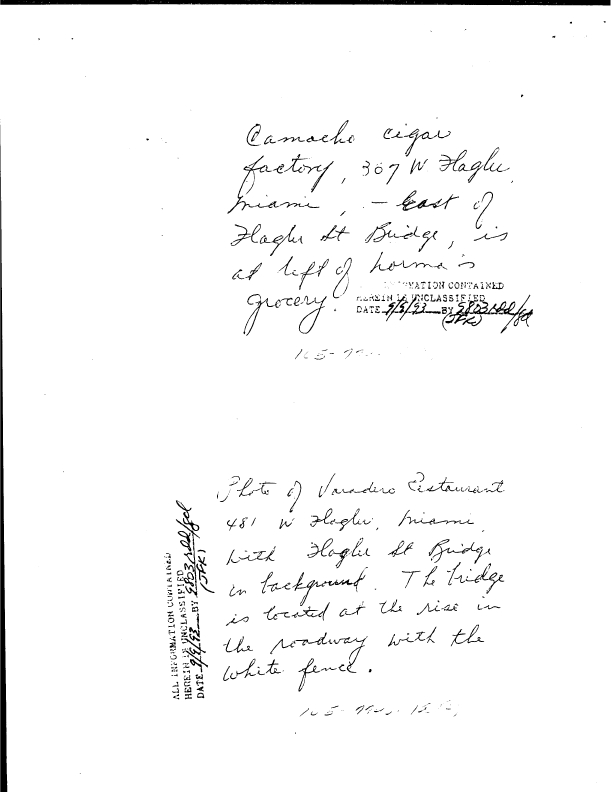 Camacho cigar
factory, 367 W Flagler
Miami, - East of
Flagler St Bridge, is
at left of Norma's
grocery.
INFORMATION CONTAINED
HEREIN IS UNCLASSIFIED
DATE 9/5/93 BY 9803 rdd/gcl
(JFK)
105-
Photo of Varadero Restaurant
481 W Flagler, Miami
with Flagler St Bridge
in background. The bridge
is located at the rise in
the roadway with the
white fence.
105-
ALL INFORMATION CONTAINED
HEREIN IS UNCLASSIFIED
DATE 9/5/93 BY 9803 rdd/gcl
(JFK)